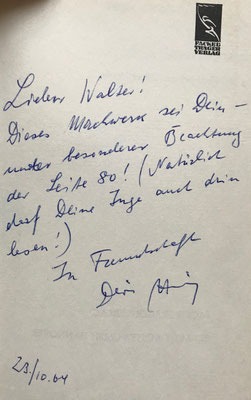 Lieber Walter!
Dieses Machwerk sei Dein –
unter besonderer Beachtung
der Seite 80! (Natürlich
darf Deine Inge auch drin
lesen!)
In Freundschaft
Dein
23./10.04